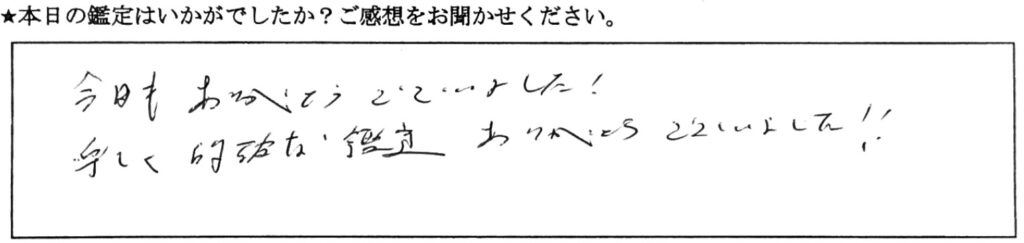 ★本日の鑑定はいかがでしたか？ご感想をお聞かせください。
今日も ありがとうございました！
楽しく 的確な 鑑定 ありがとうございました!!